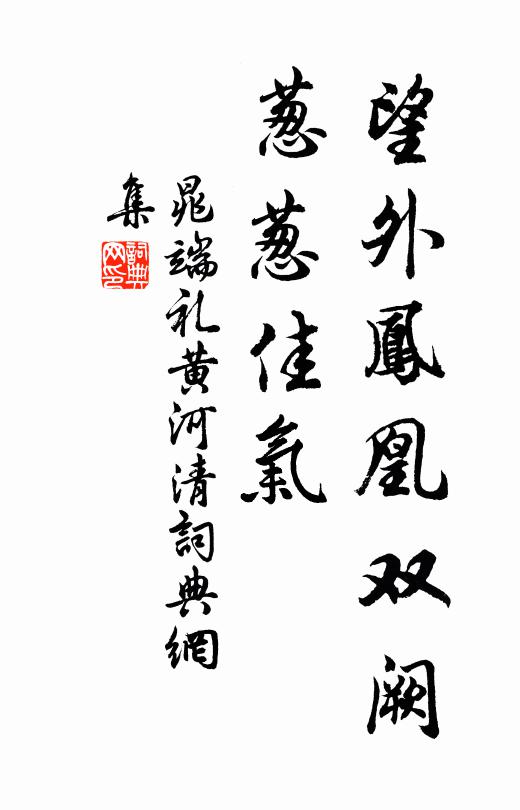 望外鳳凰双阙
葱葱佳氣
晁端礼黄河清詞典網
集
詞典网印